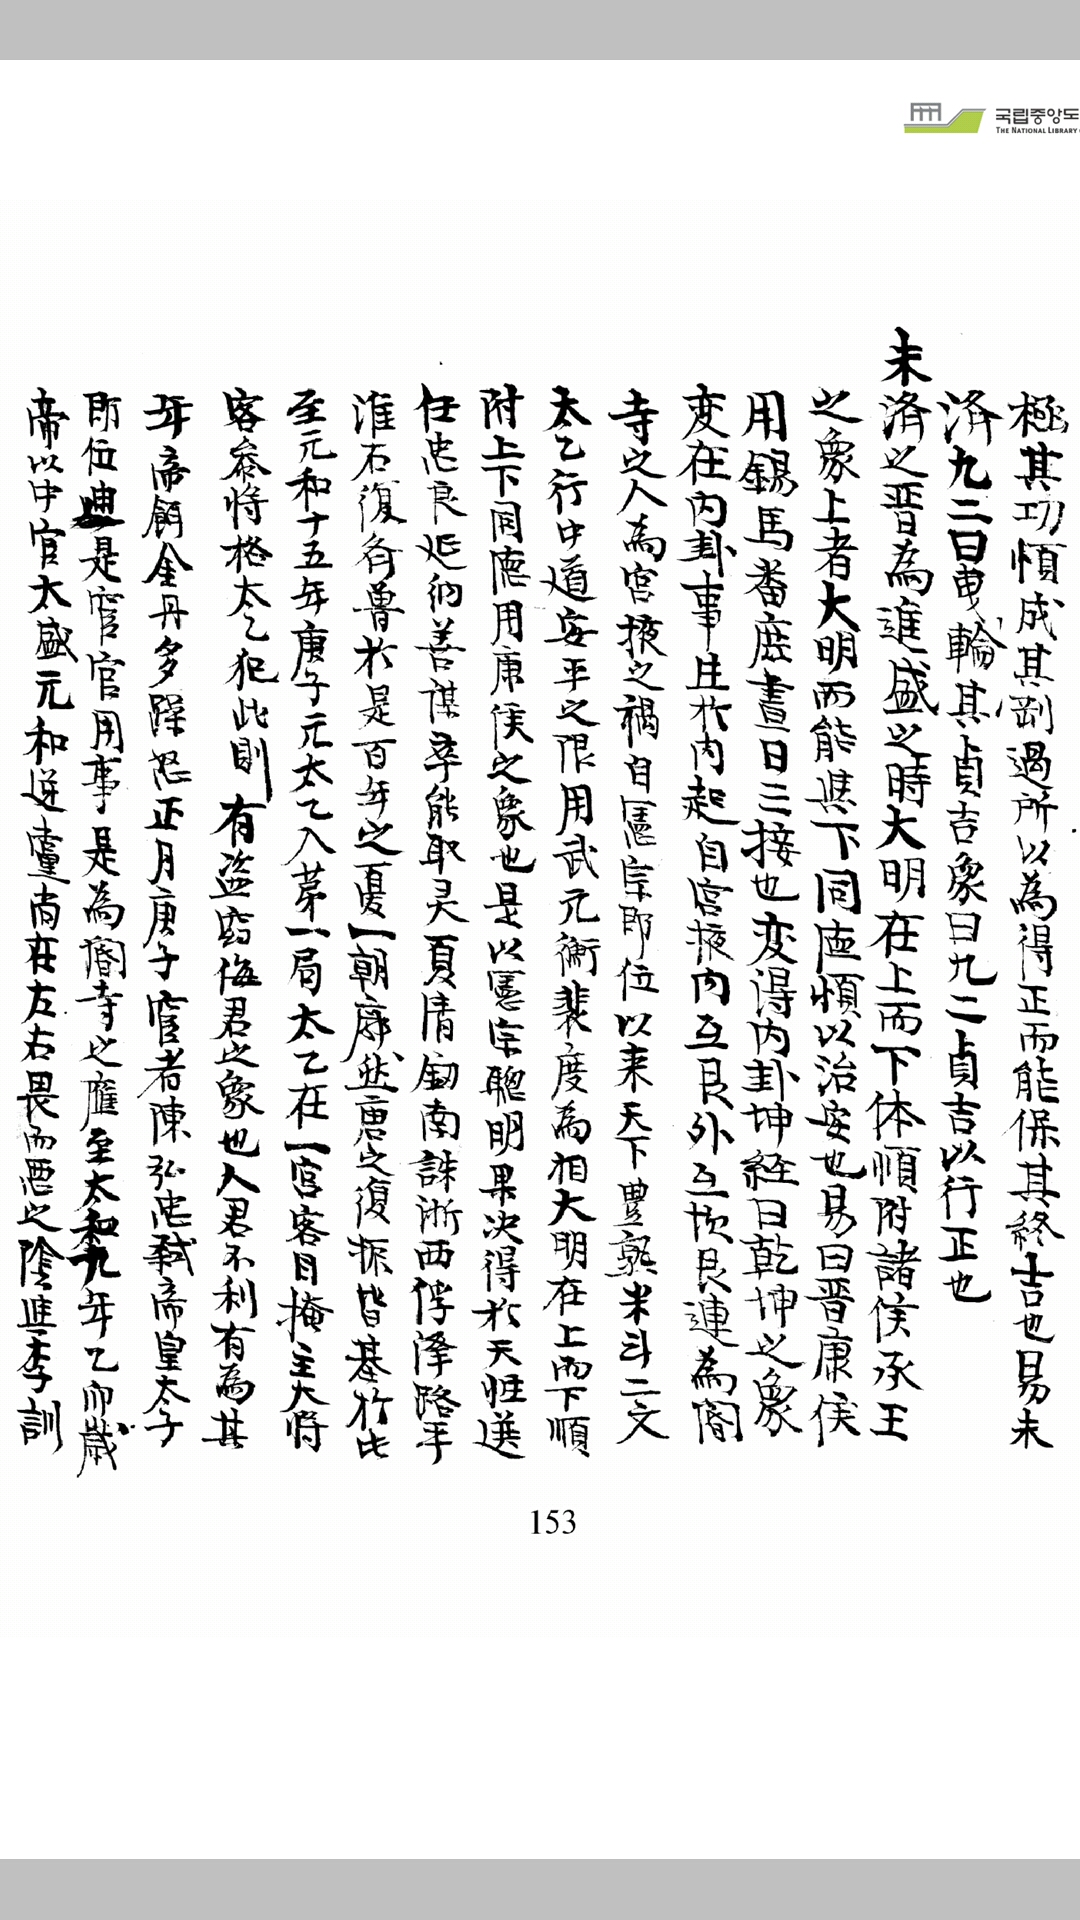 국립중앙도
THE NATIONAL LIBRARY
極其功愼成其剛過所以為得正而能保其終吉也易未
済九二曰曳輪其貞吉象曰九二貞吉以行正也
未済之晋為進盛之時大明在上而下体順附諸侯承王
之象上者大明而能與下同徳順以治安也易曰晋康侯
用錫馬蕃庶晝日三接也变得内卦坤経曰乾坤之象
变在内卦事生於内起自宮掖内互艮外互坎艮連為閽
寺之人為宮掖之禍自憲宗即位以来天下豊熟米斗二文
太乙行中道安平之限用武元衡裴度為相大明在上而下順
附上下同徳用康侯之象也是以憲宗聰明果決得於天性選
任忠良延納善謀卒能取灵夏清劒南誅浙西俘澤路平
淮右復斉魯於是百年之憂一朝廓然唐之復振皆基於此
至元和十五年庚子元太乙入第一局太乙在一宮客目掩主大將
客參將格太乙犯此則有盜窃侮君之象也人君不利有為其
年帝餌金丹多躁怒正月庚子宦者陳弘志弒帝皇太子
即位由是宦官用事是為閽寺之應至太和九年乙卯歳
帝以中官太盛元和逆黨尚在左右畏而悪之陰進李訓
153